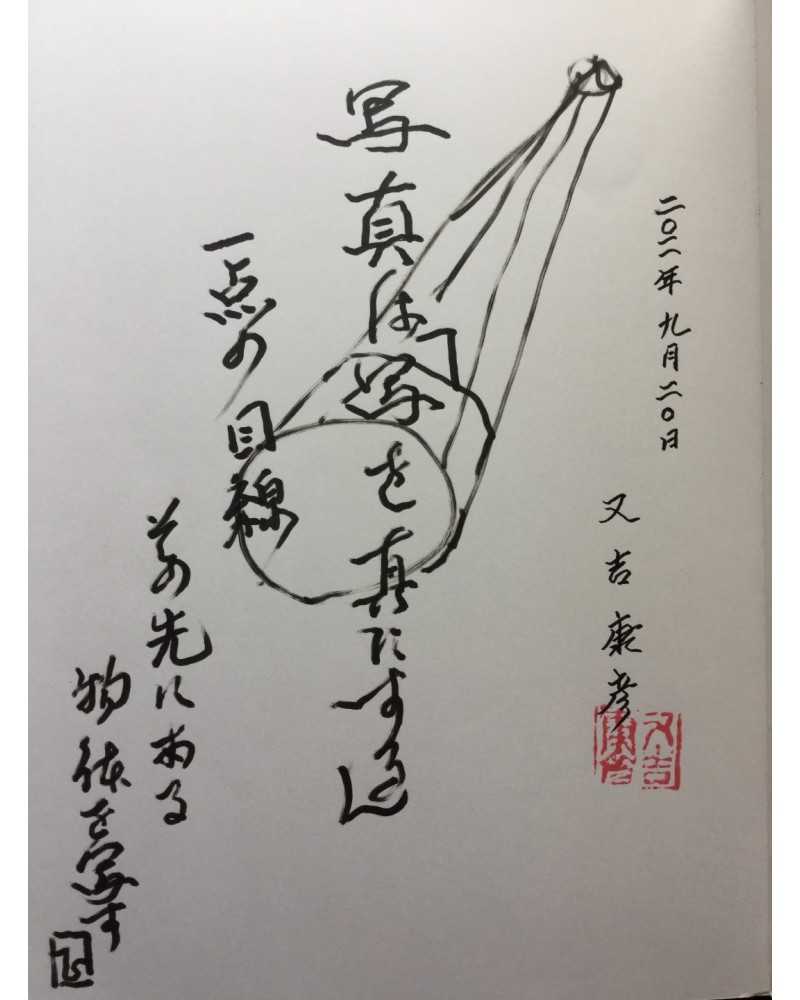 二〇二一年九月二〇日
又吉康彦
又吉
康彦
写真は「写を真にする」
一点の目線
その先にある
物体を写す